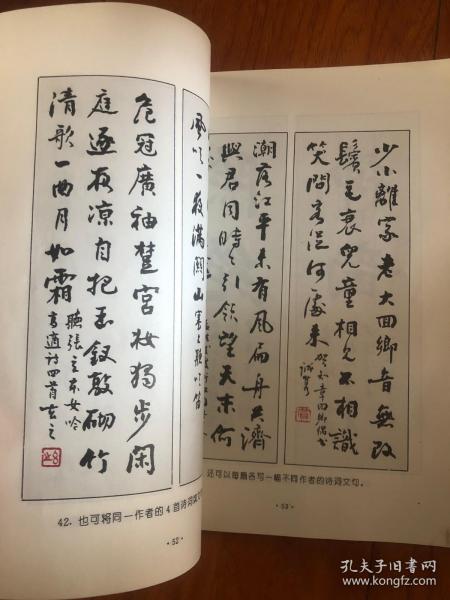 風吹一夜滿關山 塞上聽吹笛
危冠廣袖楚宮妝獨步閑
庭逐夜涼自把玉釵敲砌竹
清歌一曲月如霜
聽張立本女吟
高適詩四首
42. 也可将同一作者的4首诗词
·52·
少小離家老大回鄉音無改
鬢毛衰兒童相見不相識
笑問客從何處來
賀知章回鄉偶書
潮落江平未有風扁舟共濟
與君同時時引領望天末何
还可以每幅各写一幅不同作者的诗词文句。
·53·
孔夫子旧书网
www.kongfz.com